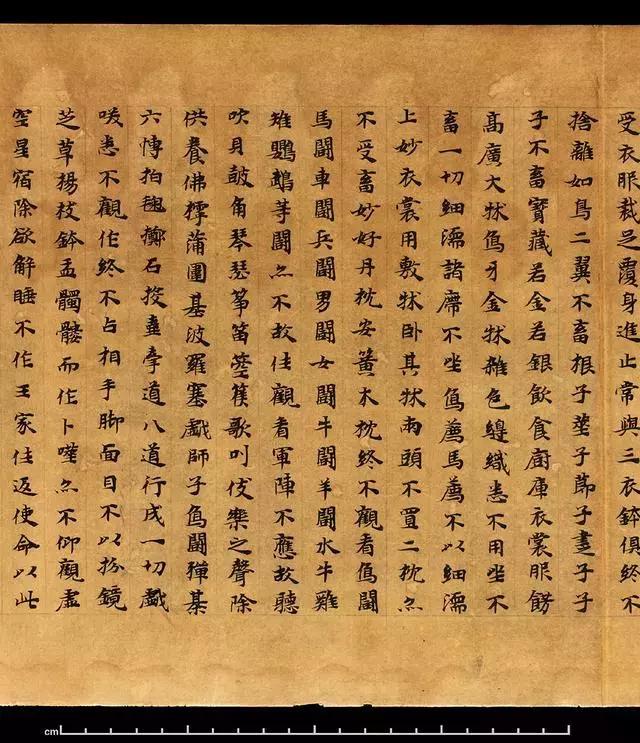 受衣服裁足覆身進止常與三衣鉢俱終不
捨離如鳥二翼不畜根子莖子莭子子子
子不畜寶藏若金若銀飲食廚庫衣裳服餝
高廣大牀象牙金牀雜色綖織悉不用坐不
畜一切細濡諸廗不坐象薦馬薦不以細濡
上妙衣裳用敷牀卧其牀兩頭不置二枕亦
不受畜妙好丹枕安黃木枕終不觀看象鬪
馬鬪車鬪兵鬪男鬪女鬪牛鬪羊鬪水牛雞
雉鸚鵡等鬪亦不故往觀看軍陣不應故聽
吹貝皷角琴瑟箏笛箜篌歌叫伎樂之聲除
供養佛摴蒲圍碁波羅塞戲師子象鬪彈碁
六博拍毱擲石投壺牽道八道行成一切戲
咲悉不觀作終不占相手脚面目不以抓鏡
芝草楊枝鉢盂髑髏而作卜噬亦不仰觀虛
空星宿除欲解睡不作王家往返使命以此
cm